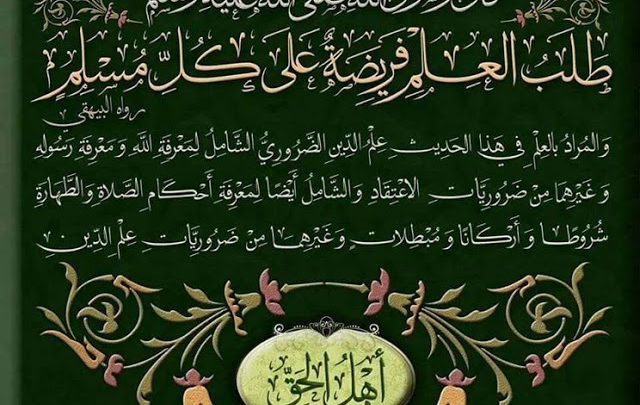 قال رسول الله صلى الله عليه وسلم
طَلَبُ العِلْمِ فَرِيضَةٌ عَلَى كُلِّ مُسْلِمٍ
رواه البيهقي
وَالمُرَادُ بِالعِلْمِ فِي هَذَا الحَدِيثِ عِلْمُ الدِّينِ الضَّرُورِيُّ الشَّامِلُ لِمَعْرِفَةِ اللَّهِ وَمَعْرِفَةِ رَسُولِهِ
وَغَيْرِهِمَا مِنْ ضَرُورِيَّاتِ الاعْتِقَادِ وَالشَّامِلُ أَيْضًا لِمَعْرِفَةِ أَحْكَامِ الصَّلَاةِ وَالطَّهَارَةِ
شُرُوطًا وَأَرْكَانًا وَمُبْطِلَاتٍ وَغَيْرِهَا مِنْ ضَرُورِيَّاتِ عِلْمِ الدِّينِ
أَهْلُ الحَقِّ